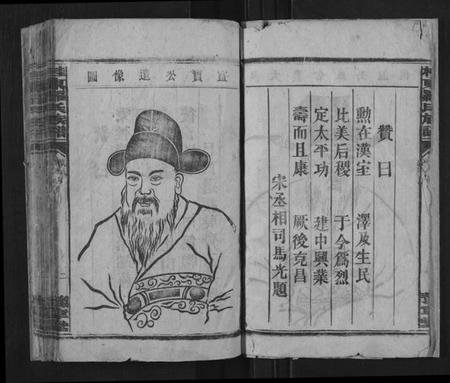 贊曰
勲在漢室 澤及生民
比美后稷 于今爲烈
定太平功 建中興業
壽而且康 厥後克昌
宋丞相司馬光題
宣寶公遺像圖